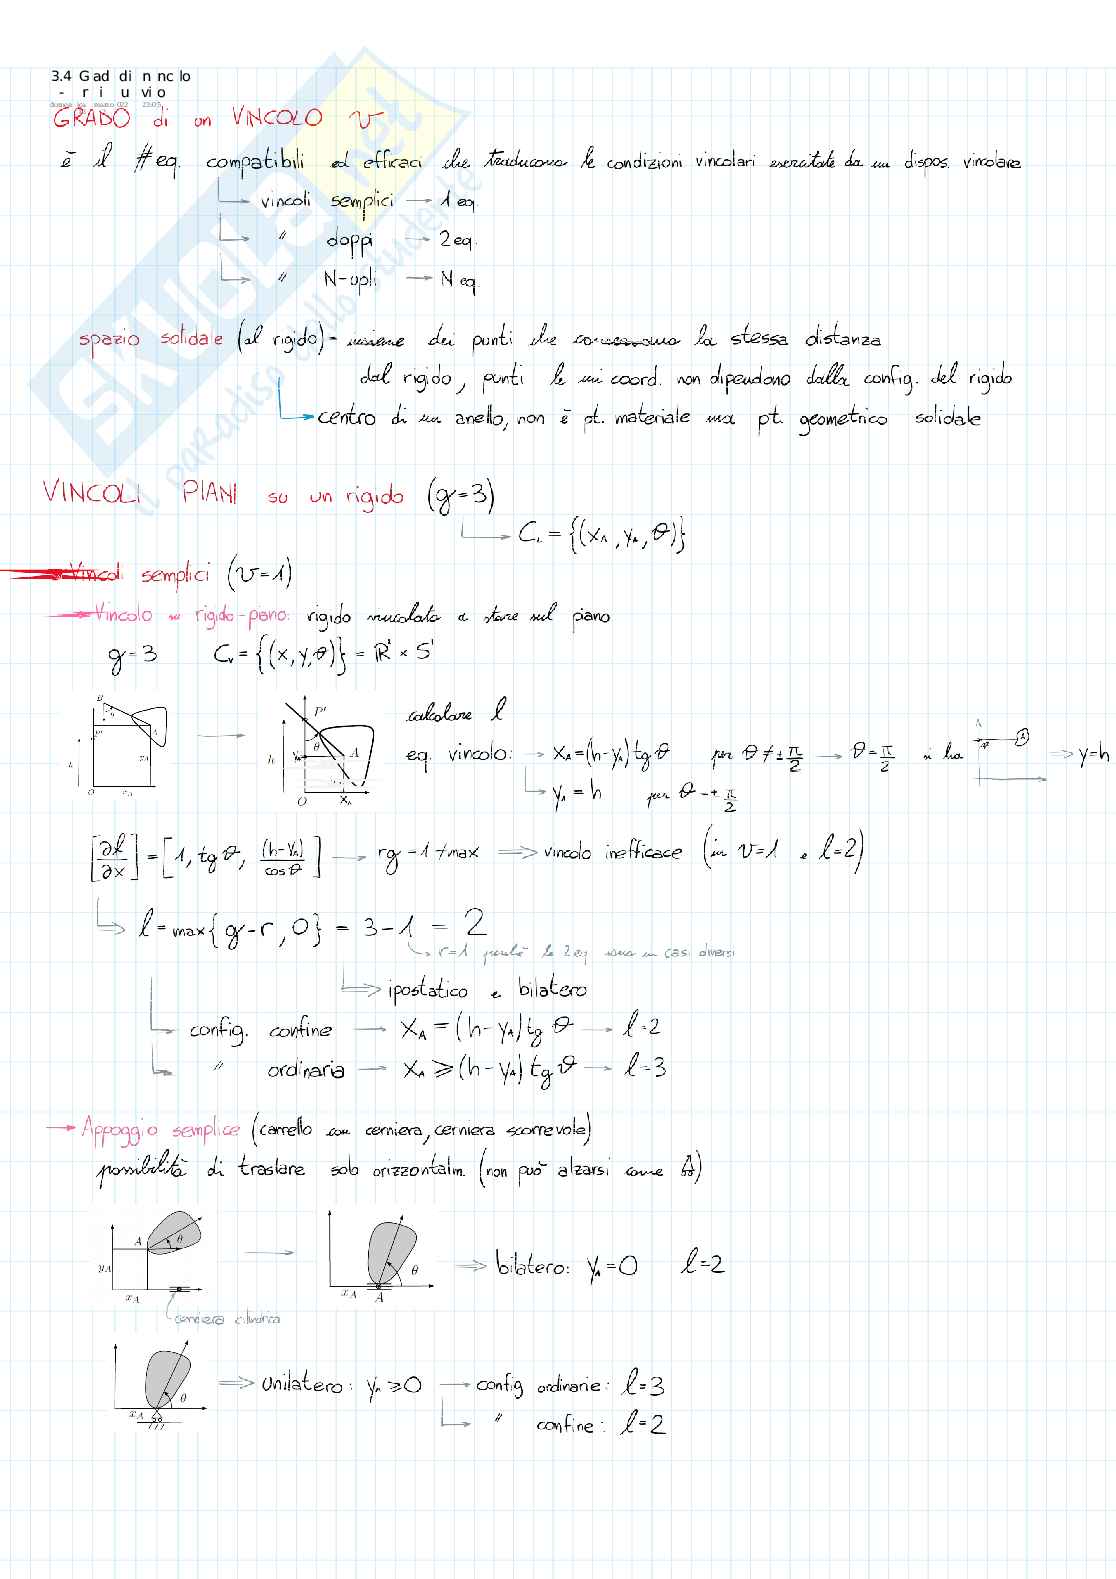 3.4 Gad di n nc lo
- r i u vi o
GRADO di un VINCOLO v
è il # eq. compatibili ed efficaci che traducono le condizioni vincolari esercitate da un dispos. vincolare
vincoli semplici → 1 eq.
" doppi → 2 eq.
" N-upli → N eq.
spazio solidale (al rigido) - insieme dei punti che conservano la stessa distanza
dal rigido, punti le cui coord. non dipendono dalla config. del rigido
centro di un anello, non è pt. materiale ma pt. geometrico solidale
VINCOLI PIANI su un rigido (g=3)
C_L = {(x_A, y_A, θ)}
Vincoli semplici (v=1)
Vincolo su rigido-piano: rigido vincolato a stare sul piano
g=3 C_v = {(x,y,θ)} = R² × S¹
calcolare l
eq. vincolo: → x_A = (h-y_A) tg θ per θ ≠ ± π/2 → θ = π/2 si ha ⇒ y=h
y_A = h per θ = ± π/2
[∂f/∂x] = [1, tg θ, (h-y_A)/cos θ] → rg = 1 ≠ max ⇒ vincolo inefficace (in v=1 e l=2)
l = max{g-r, 0} = 3-1 = 2
r=1 perché le 2 eq sono in casi diversi
⇒ ipostatico e bilatero
config. confine → x_A = (h-y_A) tg θ → l=2
" ordinaria → x_A ≥ (h-y_A) tg θ → l=3
→ Appoggio semplice (carrello con cerniera, cerniera scorrevole)
possibilità di traslare solo orizzontalm. (non può alzarsi come A)
A θ
y_A
x_A
cerniera cilindrica
θ
x_A A
⇒ bilatero: y_A = 0 l=2
θ
x_A
⇒ Unilatero: y_A ≥ 0 → config ordinarie: l=3
" confine: l=2